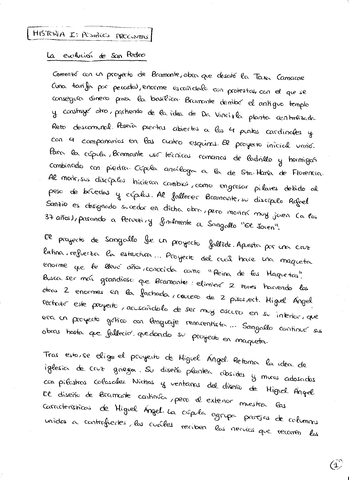 HISTORIA I: POSIBLES PREGUNTAS
La evolución de San Pedro
Comenzó con un proyecto de Bramante, obra que desató la Taxa Camarae
(una tarifa por pecados), enorme escándalo con protestas, con el que se
conseguía dinero para la basílica. Bramante derribó el antiguo templo
y construyó otro, partiendo de la idea de Da Vinci, la planta centralizada.
Reto descomunal. Poseía puertas abiertas a los 4 puntos cardinales y
con 4 campanarios en las cuatro esquinas. El proyecto inicial varió.
Para la cúpula, Bramante usó técnicas romanas de ladrillo y hormigón
combinado con piedra. Cúpula análoga a la de Sta. María de Florencia.
Al morir, sus discípulos hicieron cambios, como engrosar pilares debido al
peso de bóvedas y cúpulas. Al fallecer Bramante, su discípulo Rafael
Sanzio es designado sucesor en dicha obra, pero morirá muy joven (a los
37 años), pasando a Peruzzi, y finalmente a Sangallo "El Joven".
El proyecto de Sangallo fue un proyecto fallido. Apuesta por una cruz
latina, refuerza la estructura... Proyecto del cual hace una maqueta
enorme que te lleva años, conocida como "Reina de las Maquetas".
Busca ser más grandioso que Bramante: eliminó 2 torres haciendo las
otras 2 enormes en la fachada, cúpula de 2 pisos, ect. Miguel Ángel
rechazó este proyecto, acusándolo de ser muy oscuro en su interior, que
era un proyecto gótico con lenguaje renacentista... Sangallo continuó sus
obras hasta que falleció, quedando su proyecto en maqueta.
Tras esto, se elige el proyecto de Miguel Ángel. Retoma la idea de
iglesia de cruz griega. Su diseño plantea ábsides y muros adosados
con pilastras colosales. Nichos y ventanas del diseño de Miguel Ángel.
El diseño de Bramante continúa, pero el exterior muestra las
características de Miguel Ángel. La cúpula agrupa parejas de columnas
unidas a contrafuertes, las cuales reciben los nervios que recorren las
1